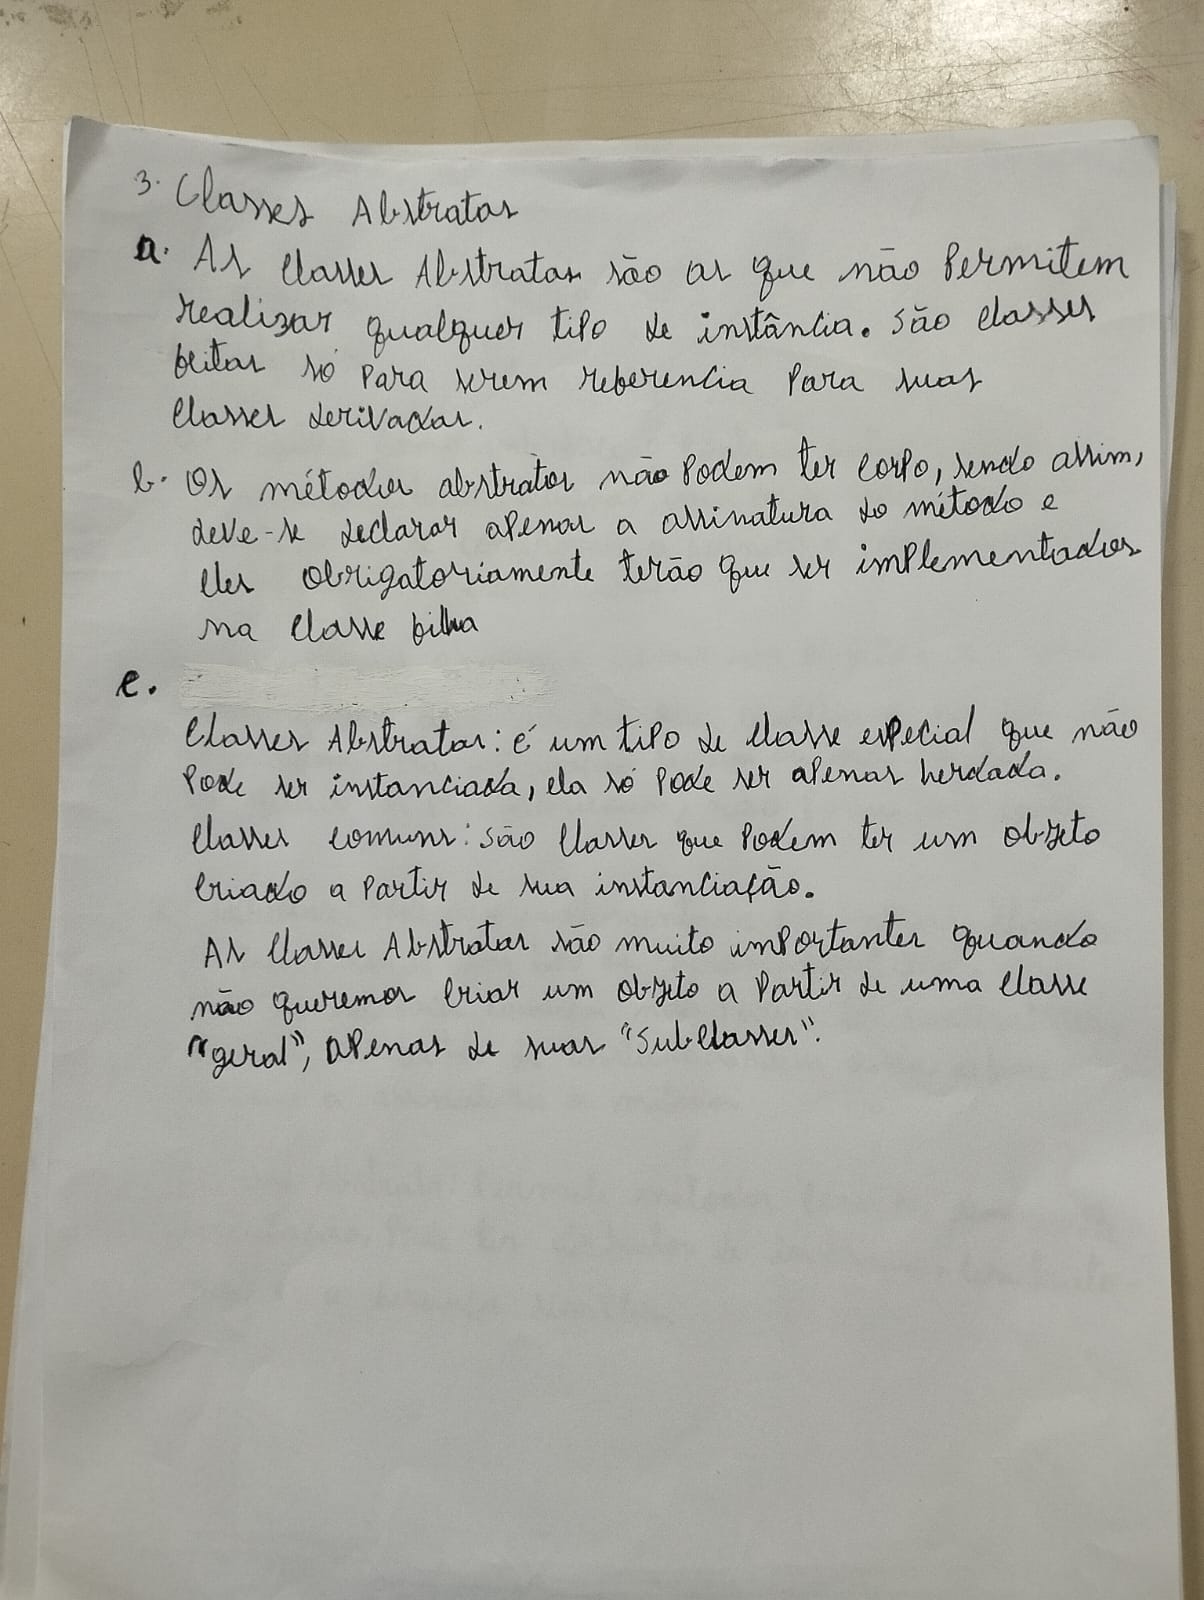 3. Classes Abstratas
a. As Classes Abstratas são as que não Permitem
realizar qualquer tipo de instância. São classes
feitas só para serem referencia Para suas
Classes derivadas.
b. Os métodos abstratos não Podem ter corpo, sendo assim,
deve-se declarar apenas a assinatura do método e
eles obrigatoriamente terão que ser implementados
na Classe filha
c.
Classes Abstratas: é um tipo de classe especial que não
Pode ser instanciada, ela só Pode ser apenas herdada.
Classes comuns: São Classes que Podem ter um objeto
Criado a Partir de sua instanciação.
As Classes Abstratas são muito importantes quando
não queremos Criar um objeto a Partir de uma Classe
"geral", apenas de suas "SubClasses".